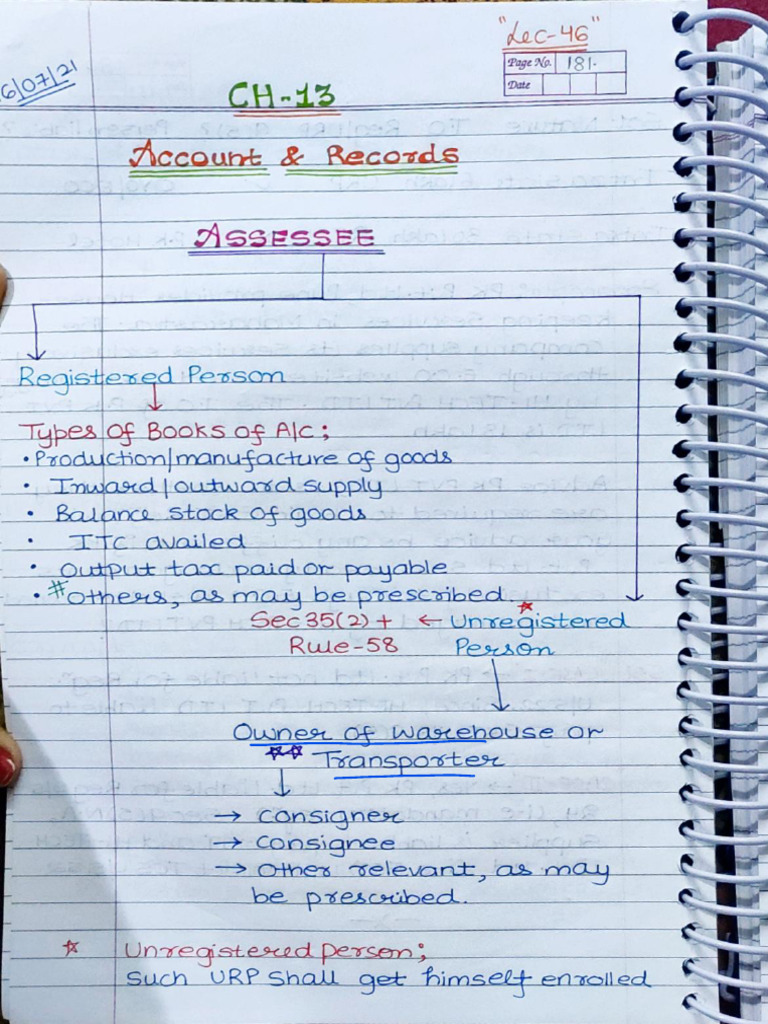 "Lec-46"
Page No. 181.
Date
6/07/21
CH-13
Account & Records
ASSESSEE
Registered Person
Types of Books of A/c;
• Production/manufacture of goods
• Inward/outward supply
• Balance stock of goods
• ITC availed
• output tax paid or payable
• #others, as may be prescribed.
Sec 35(2) + ← Unregistered
Rule-58 Person
Owner of warehouse or
Transporter
→ consigner
→ consignee
→ other relevant, as may
be prescribed.
Unregistered person;
such URP shall get himself enrolled